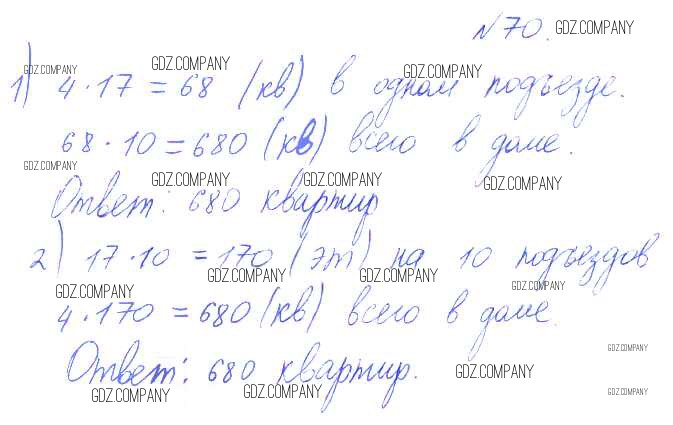 №70. GDZ.COMPANY
GDZ.COMPANY GDZ.COMPANY GDZ.COMPANY
1) 4·17 = 68 (кв) в одном подъезде.
68·10 = 680 (кв) всего в доме.
GDZ.COMPANY GDZ.COMPANY GDZ.COMPANY GDZ.COMPANY
Ответ: 680 квартир
2) 17·10 = 170 (эт) на 10 подъездов
GDZ.COMPANY GDZ.COMPANY GDZ.COMPANY GDZ.COMPANY
4·170 = 680 (кв) всего в доме.
GDZ.COMPANY
Ответ: 680 квартир.
GDZ.COMPANY GDZ.COMPANY GDZ.COMPANY GDZ.COMPANY